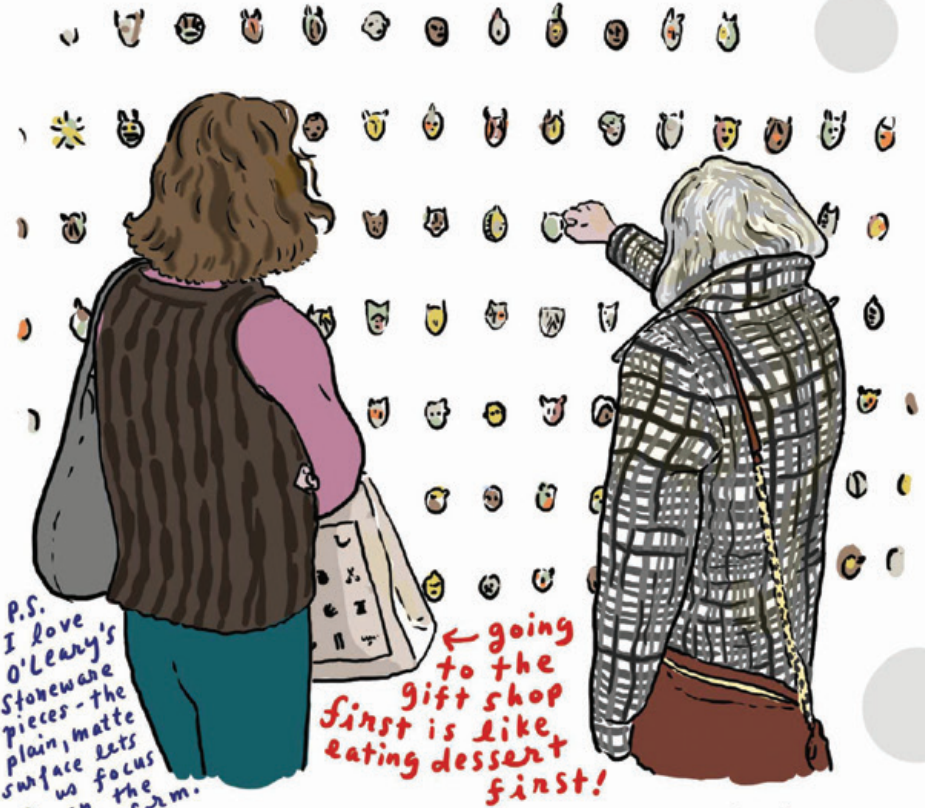 P.S.
I love
O'Leary's
Stoneware
pieces - the
plain, matte
surface lets
us focus
the
form.
← going
to the
gift shop
first is like
eating dessert
first!